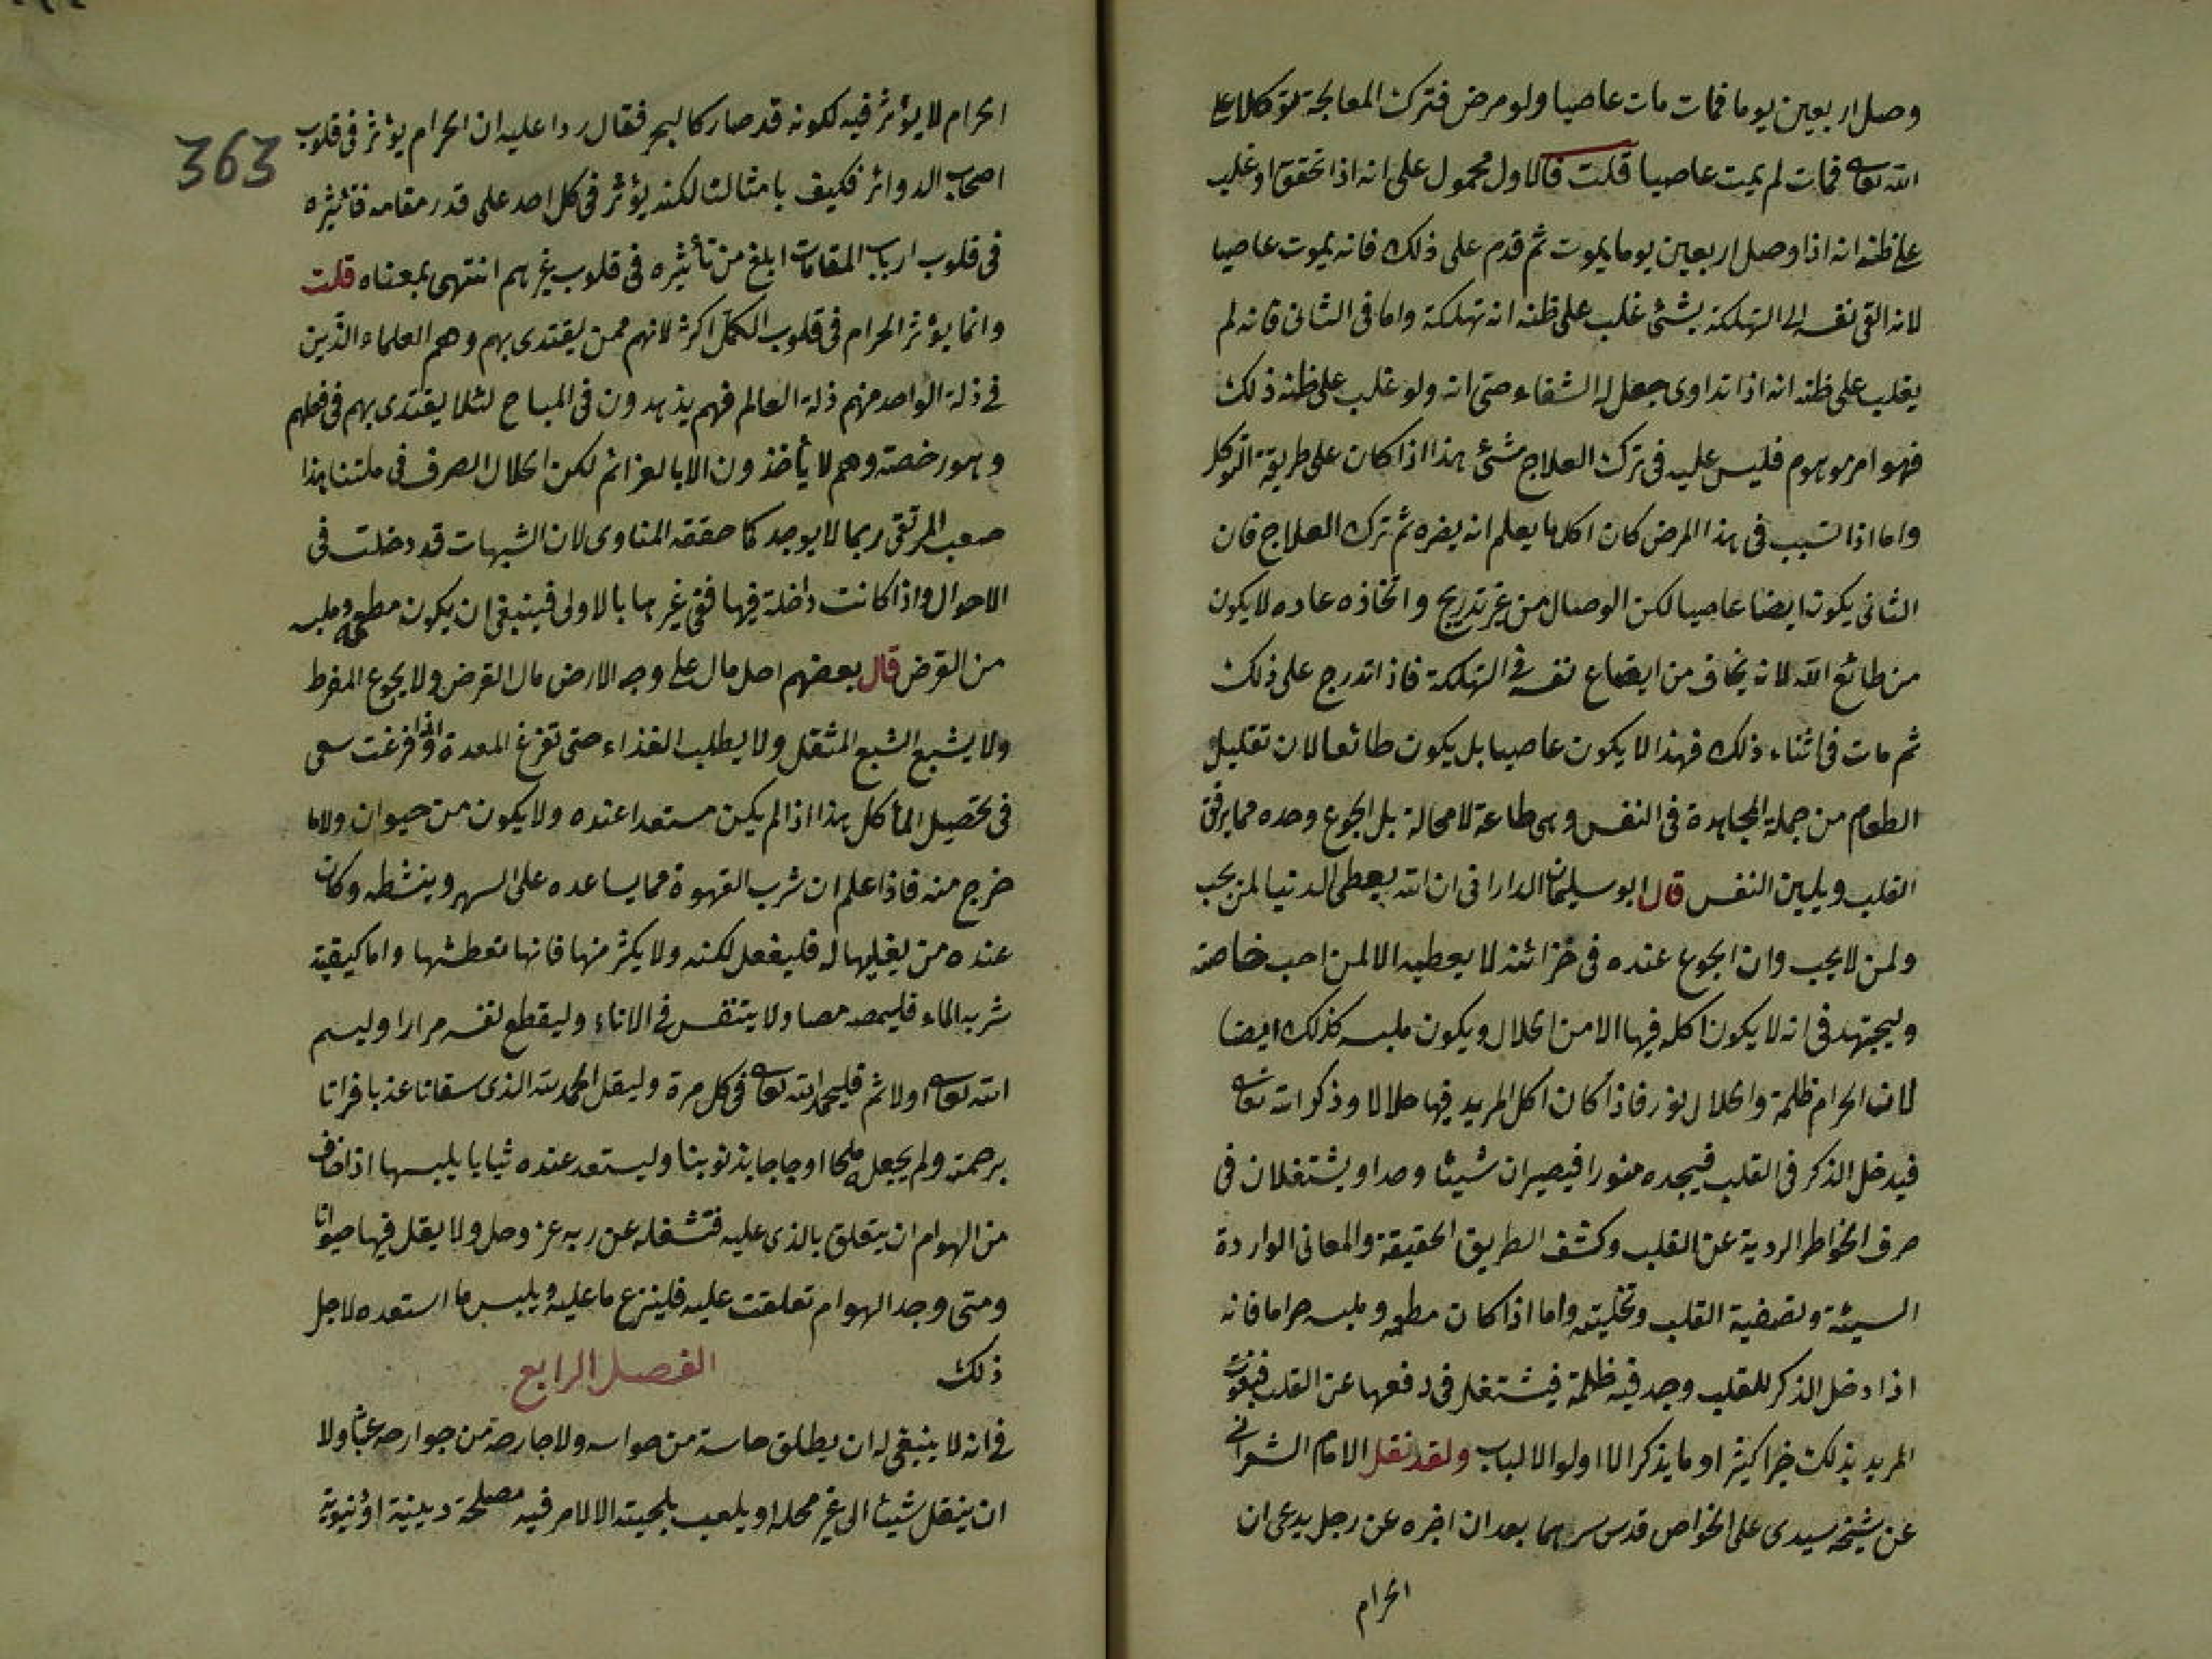 وصل اربعين يوما فمات مات عاصيا ولو مرض فترك المعالجة توكلا على
الله تعالى فمات لم يمت عاصيا قلت فالاول محمول على انه اذا تحقق او غلب
على ظنه انه اذا وصل اربعين يوما يموت ثم قدم على ذلك فانه يموت عاصيا
لانه القى نفسه الى التهلكة بشئ غلب على ظنه انه تهلكة واما فى الثانى فانه لم
يغلب على ظنه انه اذا تداوى جعل له الشفاء حتى انه ولو غلب على ظنه ذلك
فهو امر موهوم فليس عليه فى ترك العلاج شئ هذا اذا كان على طريقة التوكل
واما اذا تسبب فى هذا المرض كان اكل ما يعلم انه يضره ثم ترك العلاج فان
الثانى يكون ايضا عاصيا لكن الوصال من غير تدريج واتخاذه عاده لا يكون
من طائع الله لانه يخاف من ايقاع نفسه فى التهلكة فاذا تدرج على ذلك
ثم مات فى اثناء ذلك فهذا لا يكون عاصيا بل يكون طائعا لان تقليل
الطعام من جملة المجاهدة فى النفس وهى طاعة لا محالة بل الجوع وحده مما يرقق
القلب ويليين النفس قال ابو سليمان الدارانى ان الله يعطى الدنيا لمن يحب
ولمن لا يحب وان الجوع عنده فى خزائنه لا يعطيه الا لمن احب خاصة
وليجتهد فى انه لا يكون اكله فيها الا من الحلال ويكون ملبسه كذلك ايضا
لان الحرام ظلمة والحلال نور فاذا كان اكل المريد فيها حلالا وذكر الله تعالى
فيدخل الذكر فى القلب فيجده منورا فيصيران شيئا وحدا ويشتغلان فى
صرف الخواطر الردية عن القلب وكشف الطريق الحقيقة والمعانى الواردة
السيئة وتصفية القلب وتخليته واما اذا كان مطعمه وملبسه حراما فانه
اذا دخل الذكر للقلب وجد فيه ظلمة فيشتغل فى دفعها عن القلب فيفوت
المريد بذلك خيرا كثيرا وما يذكر الا اولو الالباب ولقد نقل الامام الشعرانى
عن شيخه سيدى على الخواص قدس سرهما بعد ان اخبره عن رجل يدعى ان
الحرام
363
الحرام لا يؤثر فيه لكونه قد صار كالبحر فقال ردا عليه ان الحرام يؤثر فى قلوب
اصحاب الدوائر فكيف بامثالنا لكنه يؤثر فى كل احد على قدر مقامه فتأثيره
فى قلوب ارباب المقامات ابلغ من تأثيره فى قلوب غيرهم انتهى بمعناه قلت
وانما يؤثر الحرام فى قلوب الكمل اكثر لانهم ممن يقتدى بهم وهم العلماء الذين
فى ذلة الواحد منهم ذلة العالم فهم يزهدون فى المباح لئلا يقتدى بهم فى فعلهم
وهو رخصة وهم لا يأخذون الا بالعزائم لكن الحلال الصرف فى ملتنا هذا
صعب المرتقى ربما لا يوجد كما حققه المناوى لان الشبهات قد دخلت فى
الاحوال واذا كانت داخلة فيها ففى غيرها بالاولى فينبغى ان يكون مطعمه وملبسه
من القرض قال بعضهم احل مال على وجه الارض مال القرض ولا يجوع المفرط
ولا يشبع الشبع المثقل ولا يطلب الغذاء حتى تفرغ المعدة واذا فرغت سعى
فى تحصيل المأكل هذا اذا لم يكن مستعدا عنده ولا يكون من حيوان ولا ما
خرج منه فاذا علم ان شرب القهوة مما يساعده على السهر وينشطه وكان
عنده من يغليها له فليفعل لكنه ولا يكثر منها فانها تعطشها واما كيفية
شربه الماء فليمصه مصا ولا يتنفس فى الاناء وليقطع نفسه مرارا وليسم
الله تعالى اولا ثم فليحمد الله تعالى فى كل مرة وليقل الحمد لله الذى سقانا عذبا فراتا
برحمته ولم يجعله ملحا اوجاجا بذنوبنا وليستعد عنده ثيابا يلبسها اذا خاف
من الهوام ان يتعلق بالذى عليه فتشغله عن ربه عز وجل ولا يقل فيها حيوانا
ومتى وجد الهوام تعلقت عليه فلينزع ما عليه ويلبس ما استعده لاجل
ذلك الفصل الرابع
فى انه لا ينبغى له ان يطلق حاسة من حواسه ولا جارحة من جوارحه عبثا ولا
ان ينقل شيئا الى غير محله او يلعب بلحيته الا لامر فيه مصلحة دينية او دنيوية